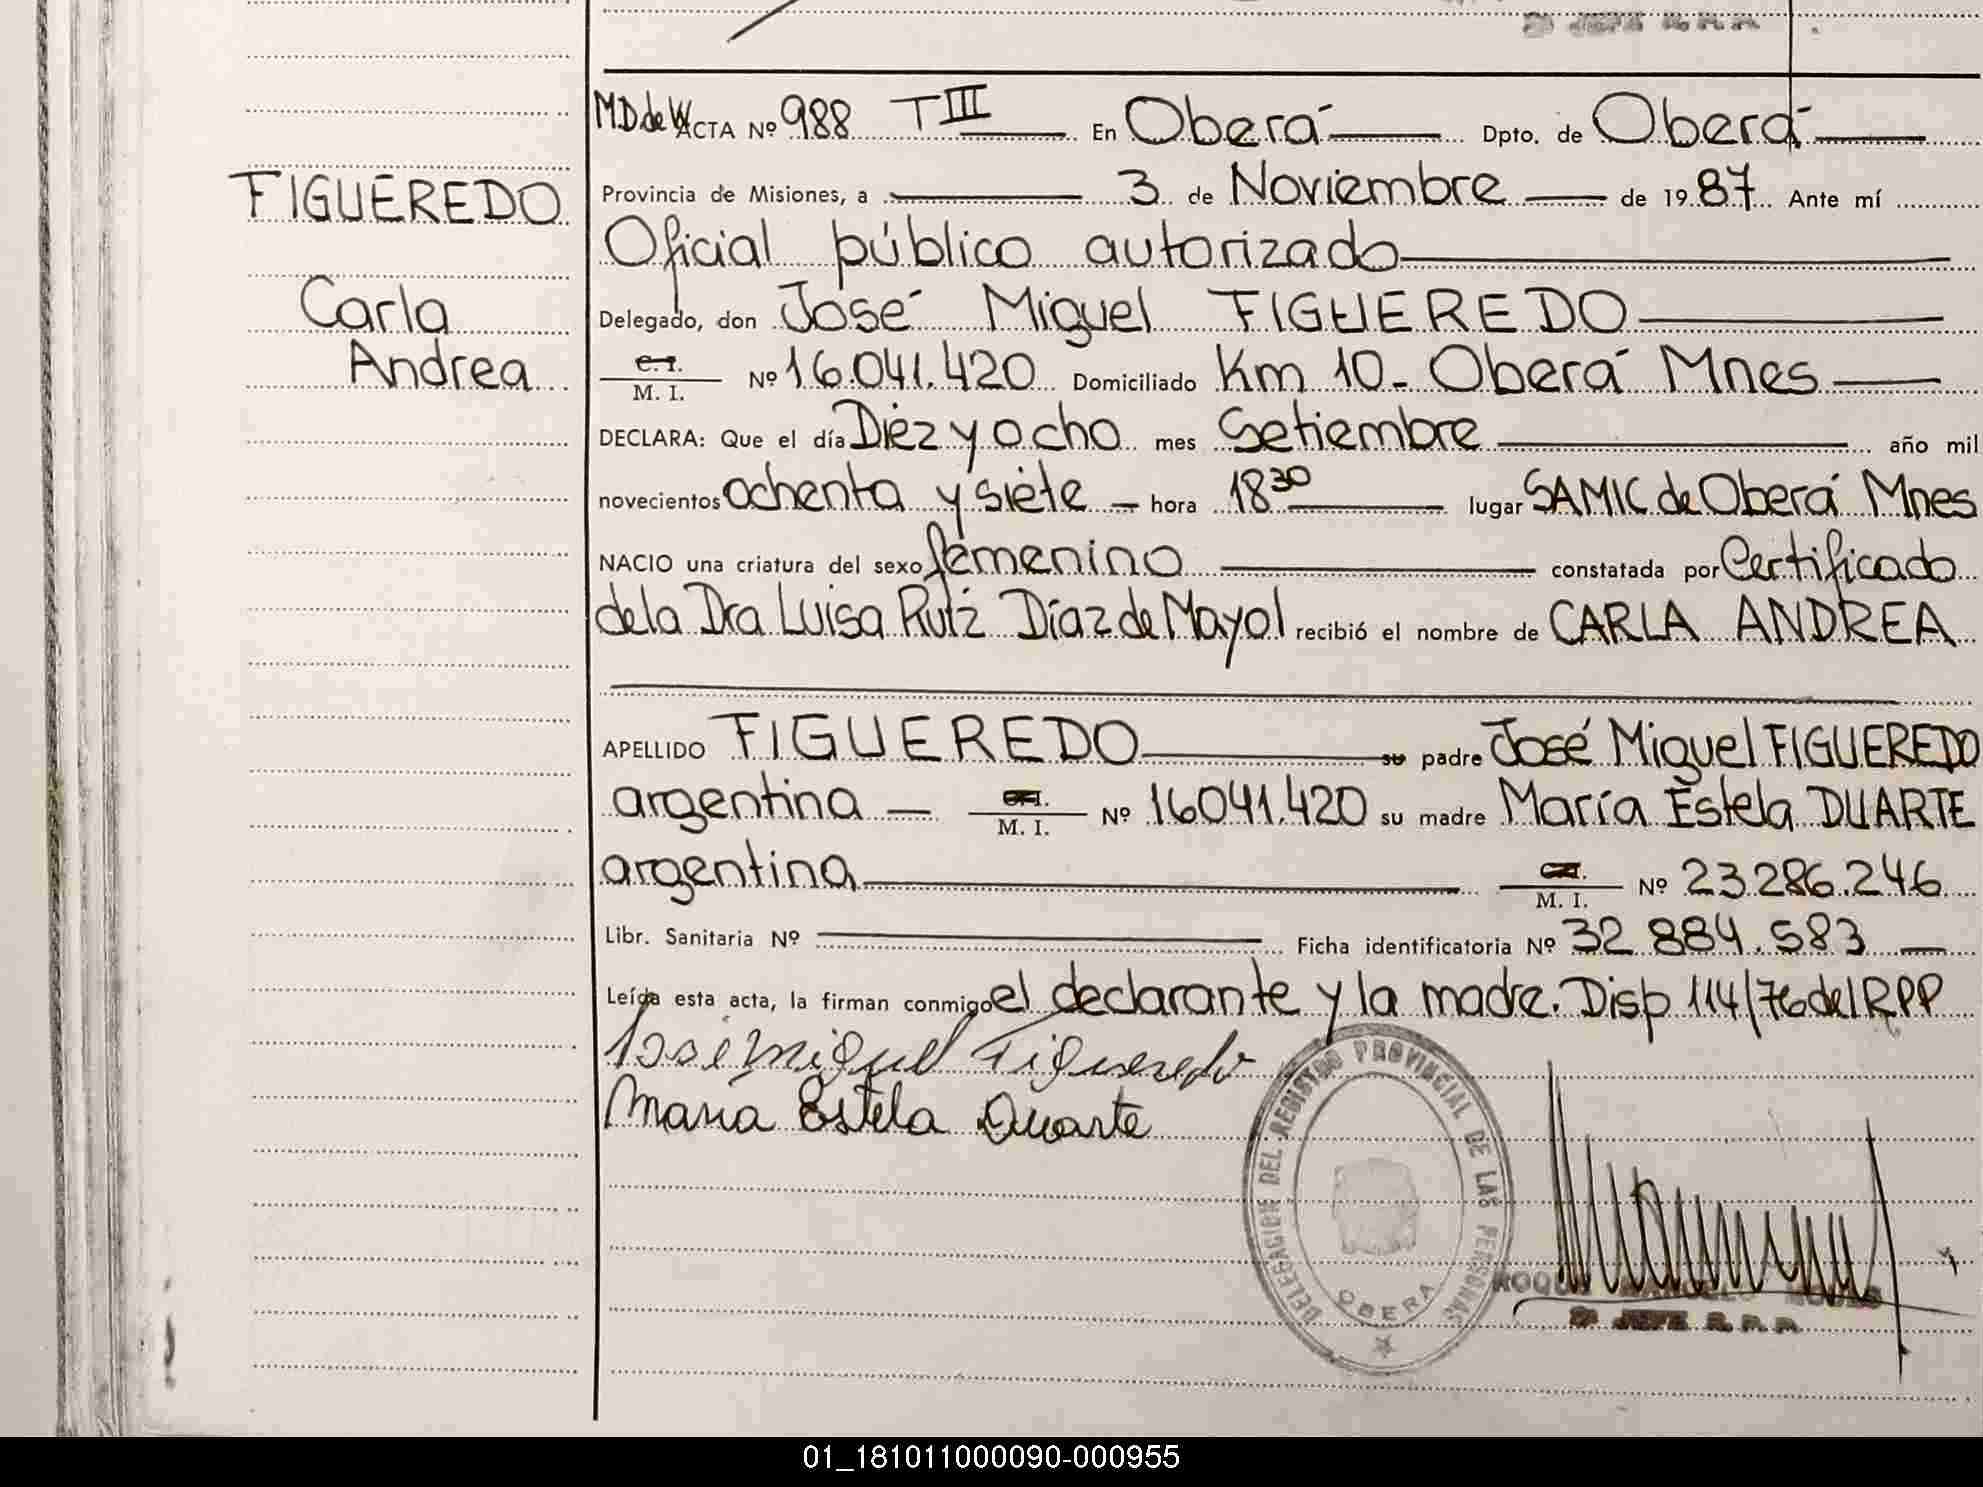 Dº JEFE R. P. P.
M.D.deW ACTA Nº 988 TIII En Oberá Dpto. de Oberá
FIGUEREDO
Provincia de Misiones, a 3 de Noviembre de 1987 Ante mí
Oficial público autorizado
Carla
Delegado, don José Miguel FIGUEREDO
Andrea
C. I. M. I. Nº 16.041.420 Domiciliado Km 10- Oberá Mnes
DECLARA: Que el día Diez y ocho mes Setiembre año mil
novecientos ochenta y siete - hora 18 30 lugar SAMIC de Oberá Mnes
NACIO una criatura del sexo femenino constatada por Certificado
de la Dra Luisa Rutz Díaz de Mayol recibió el nombre de CARLA ANDREA
APELLIDO FIGUEREDO su padre José Miguel FIGUEREDO
argentina — C. I. M. I. Nº 16041.420 su madre María Estela DUARTE
argentina C. I. M. I. Nº 23.286.246
Libr. Sanitaria Nº Ficha identificatoria Nº 32.884.583
Leída esta acta, la firman conmigo el declarante y la madre. Disp 114/76 del RPP
José Miguel Figueredo
Maria Estela Duarte
DELEGACION DEL REGISTRO PROVINCIAL DE LAS PERSONAS
OBERA
Dº JEFE R. P. P.
01_181011000090-000955